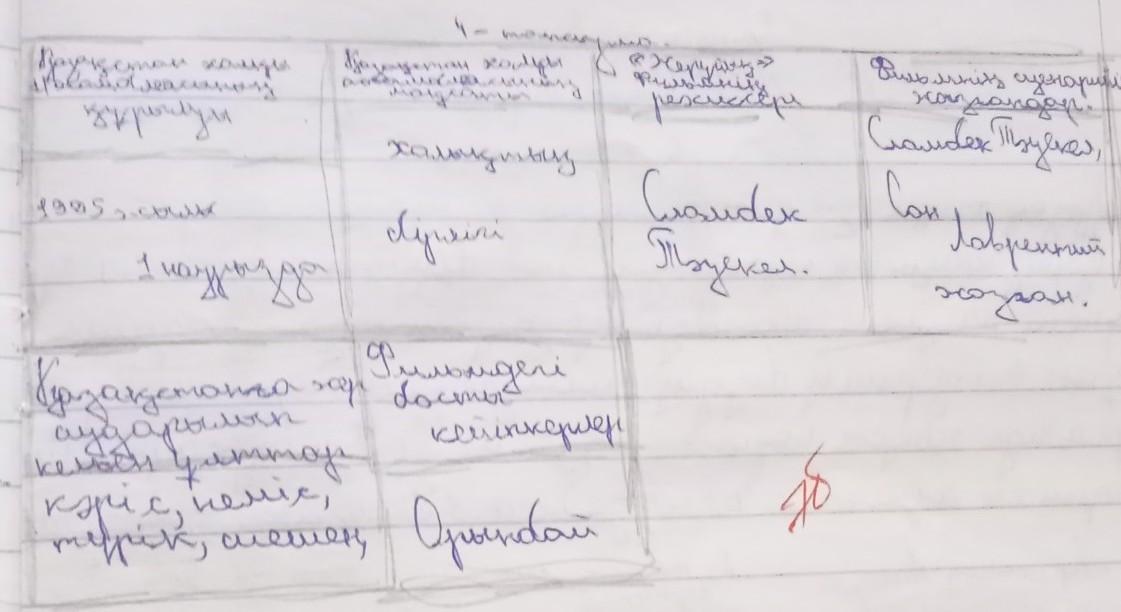 4 - тапсырма.
Қазақстан халқы
Ассамблеясының
құрылуы
1995 жылы
1 наурызда
Қазақстан халқы
ассамблеясының
мақсаты
халықтың
бірлігі
«Жерұйық»
Фильмнің
режиссері
Сламбек
Тәуекел.
Фильмнің сценарийін
жазғандар.
Сламбек Тәуекел,
Сон
Лаврентий
жазған.
Қазақстанға жер
аударылып
келген ұлттар
кәріс, неміс,
түрік, шешен,
Фильмдегі
басты
кейіпкерлер
Орынбай